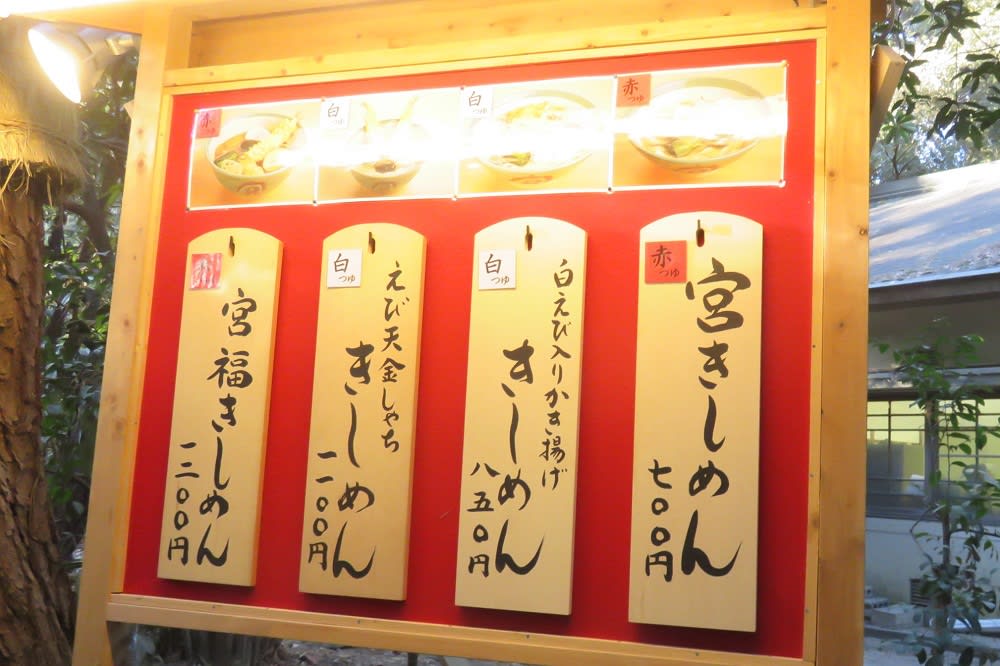 赤つゆ
白つゆ
白つゆ
赤つゆ
赤つゆ
宮きしめん
七〇〇円
白つゆ
白えび入りかき揚げ
きしめん
八五〇円
白つゆ
えび天金しゃち
きしめん
一一〇〇円
宮福きしめん
一二〇〇円